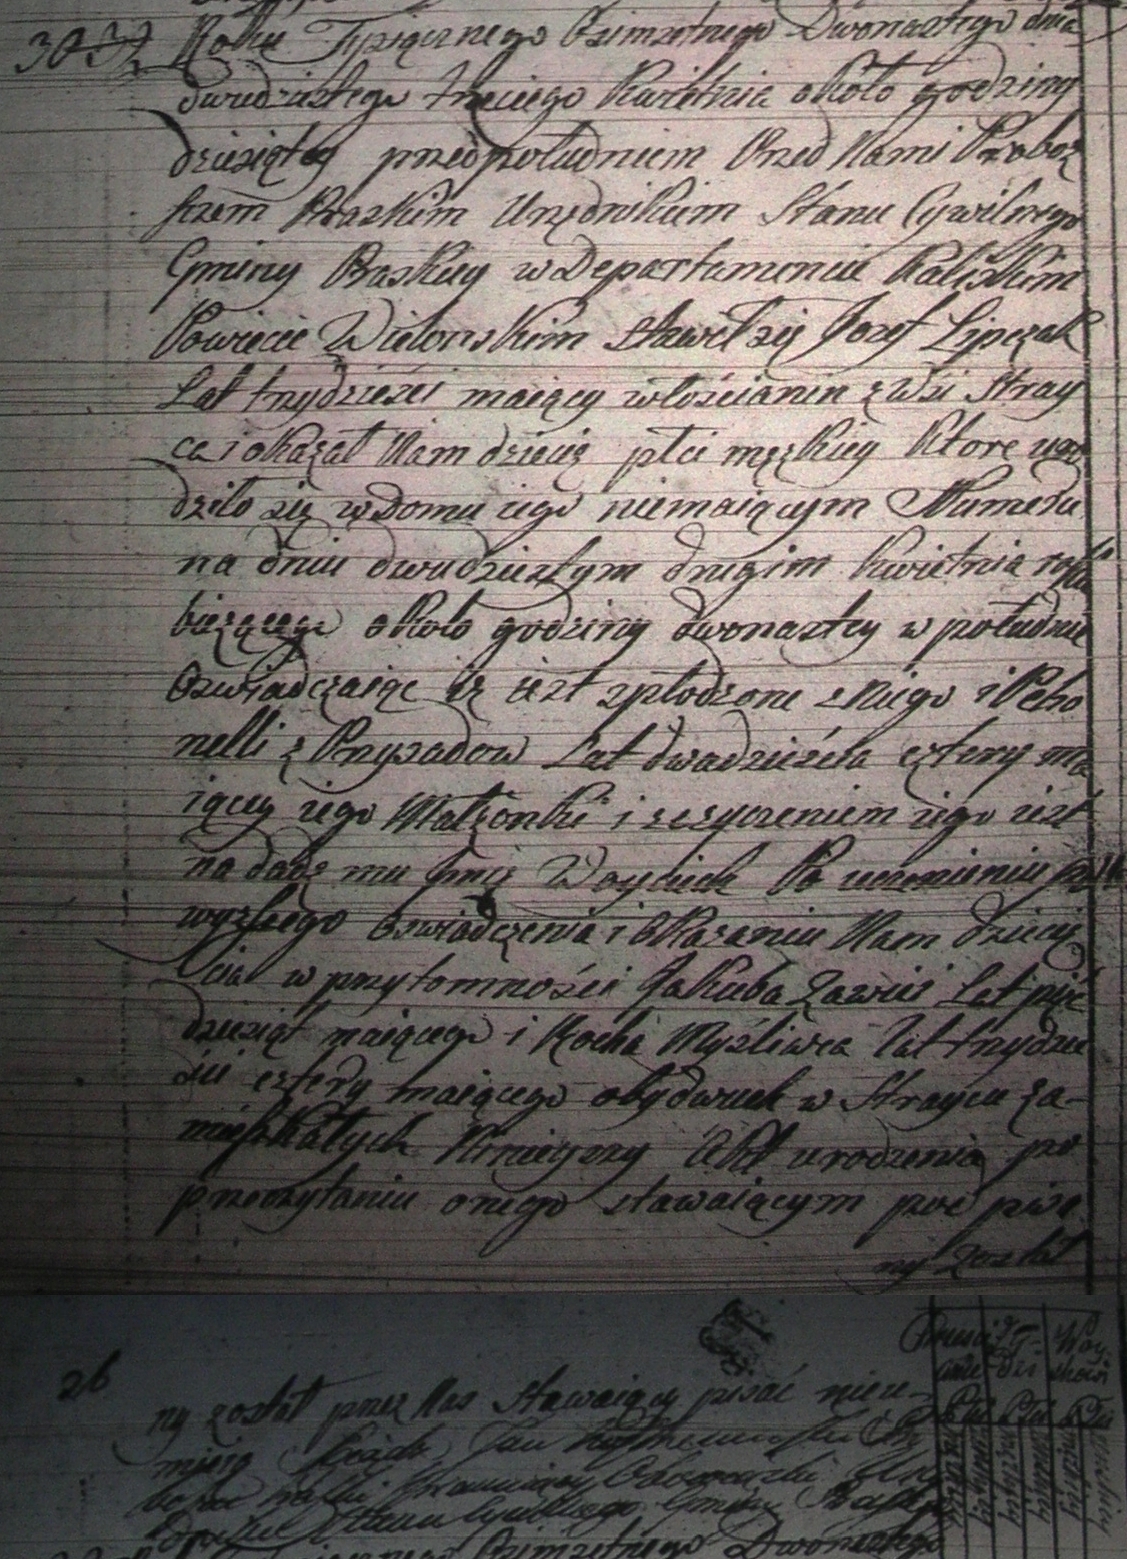 30
Roku Tysiącznego Osimsetnego Dwonastego dnia
dwudziestego trzeciego Kwietnia około godziny
dziesiątey przedpołudniem Przed Nami Probosz
czem Praskim Urzędnikiem Stanu Cywilnego
Gminy Praskiey w Departamencie Kaliskim
Powiecie Wielonskim stawił się Jozef Lipczak
Lat trzydzieści maiący włościanin z wsi Stray
ca i okazał Nam dziecię płci męzkiey ktore uro
dziło się w Domu iego niemaiącym Numeru
na dniu dwudziestym drugim Kwietnia roku
bieżącego około godziny dwonastey w południe
Oswiadczaiąc iż iest spłodzone z Niego i Petro
nelli z Lat dwadzieścia cztery ma
iącey iego Małżonki i zezyczeniem iego iest
nadadź mu Imię Woyciech Po uczynieniu po
wyższego Oswiadczenia i Okazaniu Nam dzieci
cia w przytomności Jakuba Lat pięć
dziesiąt maiącego i Rocha Myśliwca lat trzydzie
ści cztery maiącego obydwuch w Straycu za-
mieszkałych Akt urodzenia po
przeczytaniu onego stawaiącym podpisa
ny został
26
ny został przez Nas Stawaiący pisać nieu-
mieią
Stanu Cywilnego Gminy
Osimsetnego Dwonastego